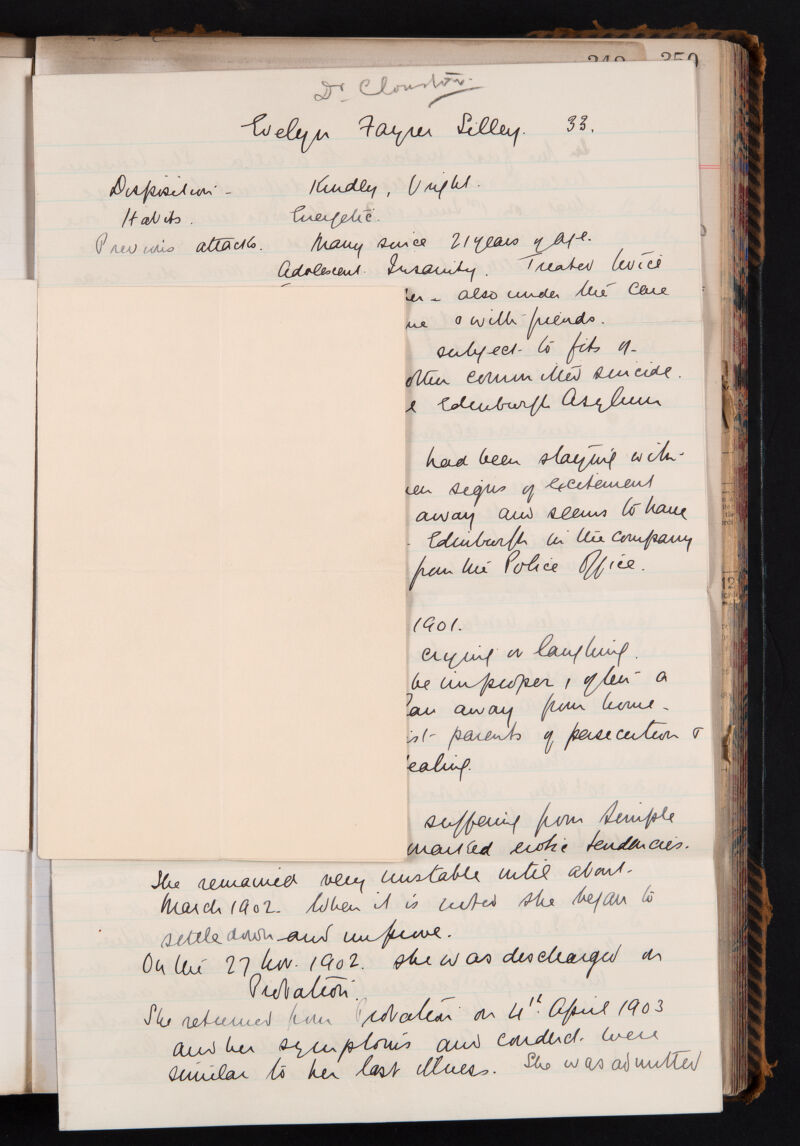 349 350
Dr. Clouston.
Evelyn Fayrer Lilley. 33.
Disposition - Kindly, bright.
Habits. Energetic.
Previous attacks. Many since 21 years of age.
Adolescent Insanity. Treated twice
her - also under the care
me & with friends.
subject to fits of
often committed suicide.
e Edinburgh Asylum
had been staying with
en signs of excitement
away and seems to have
Edinburgh in the company
from the Police Office.
1901.
crying or laughing.
be improper, often a
Ran away from home -
ist parents of persecution &
ealing.
suffering from Simple
marked erotic tendencies.
She remained very unstable until about
March 1902. When it is noted she began to
settle down and improve.
On the 27 Nov. 1902. she was discharged on
Probation.
She returned from Probation on 4th April 1903
and her symptoms and conduct were
similar to her last illness. She was admitted